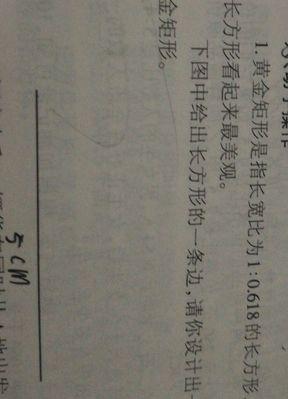 动手操作
1. 黄金矩形是指长宽比为1:0.618的长方形
长方形看起来最美观。
下图中给出长方形的一条边,请你设计出一
金矩形。
5 cm